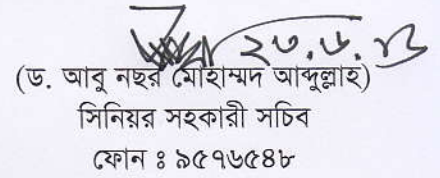 ২৩.৬.১৩
(ড. আবু নছর মোহাম্মদ আব্দুল্লাহ)
সিনিয়র সহকারী সচিব
ফোন ঃ ৯৫৭৬৫৪৮